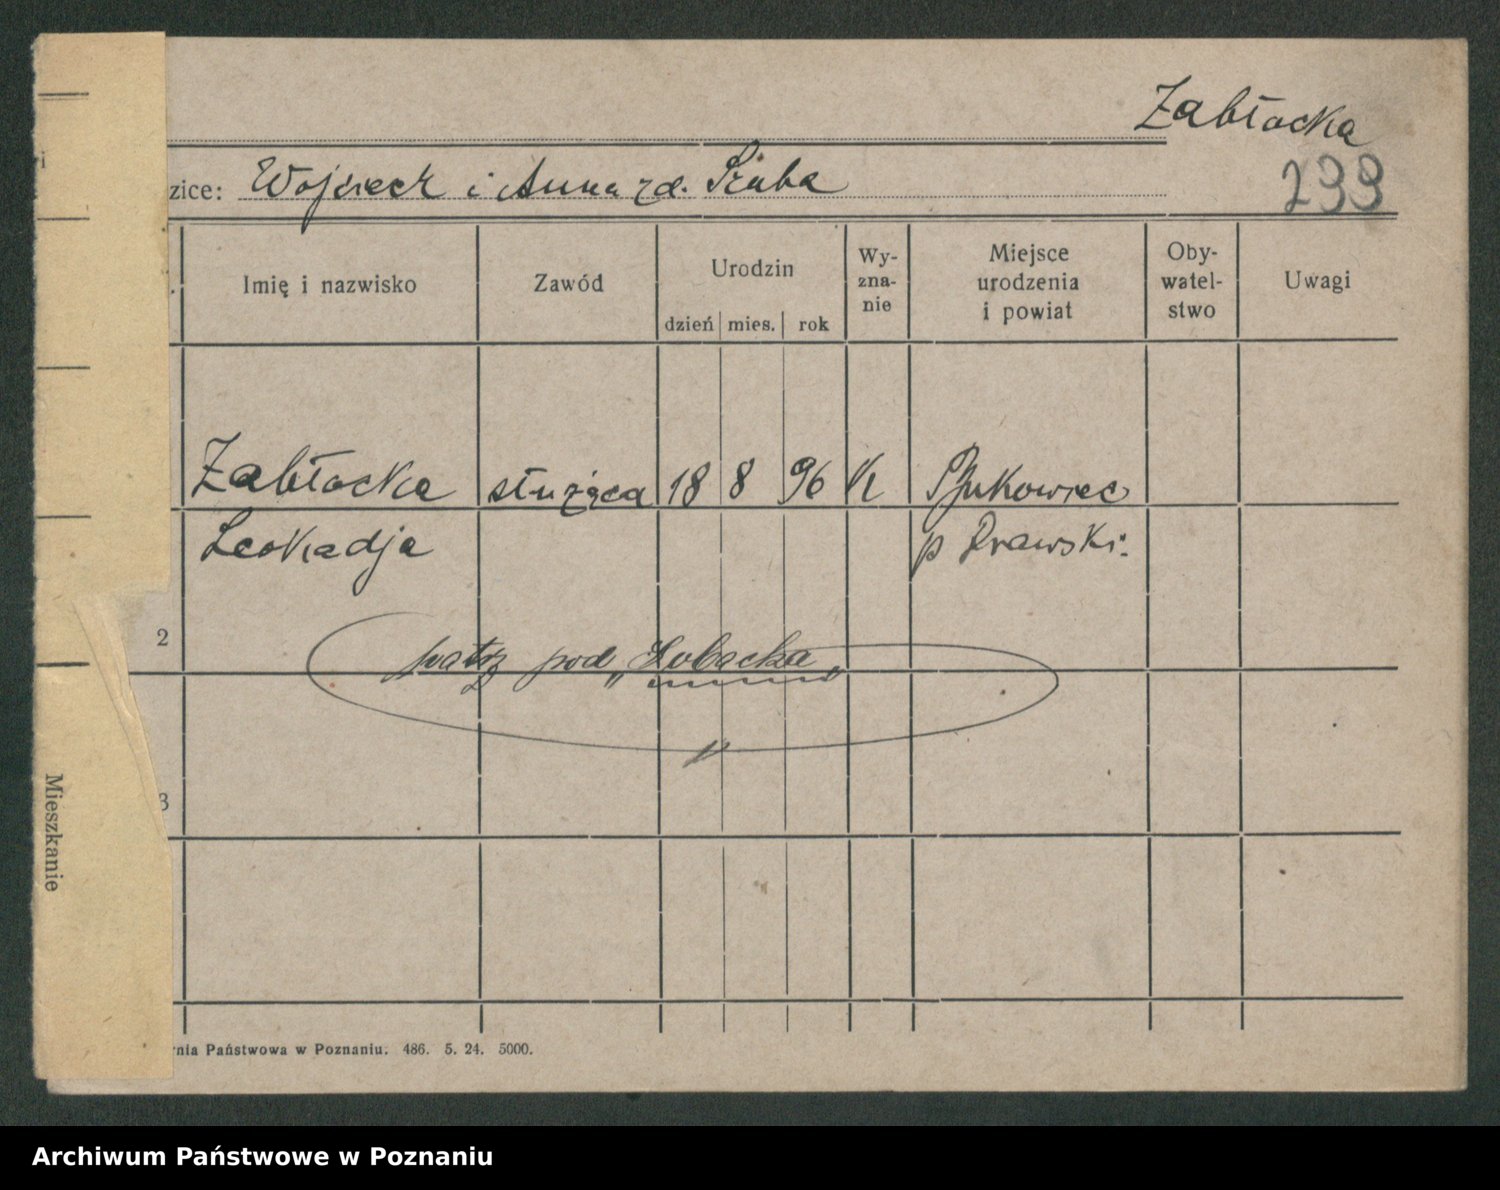 Zabłocka
299
zice: Wojciech i Anna zd. Szuba
Imię i nazwisko
Zawód
Urodzin
dzień mies. rok
Wy-
zna-
nie
Miejsce
urodzenia
i powiat
Oby-
watel-
stwo
Uwagi
Zabłocka służąca 18 8 96 K Bukowiec
Leokadja p
2
patrz pod „Łobacka"
3
Mieszkanie
rnia Państwowa w Poznaniu. 486. 5. 24. 5000.
Archiwum Państwowe w Poznaniu